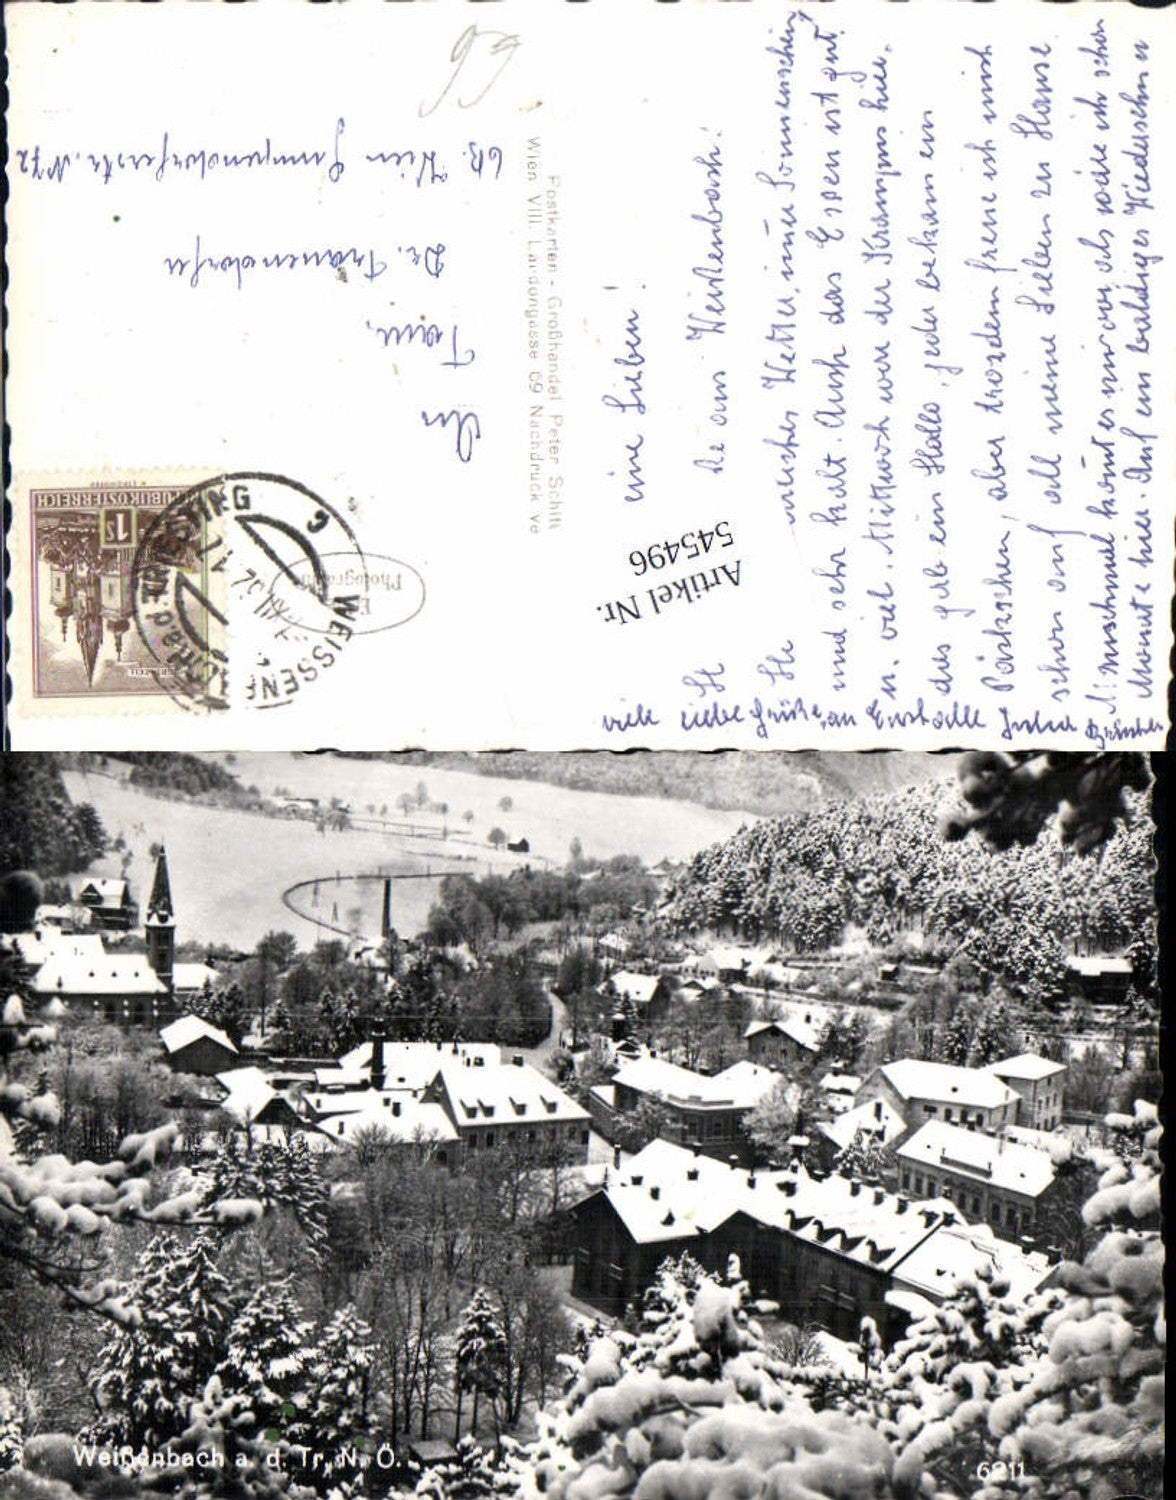 66
An
Frau,
Dr. Trauendorfer
6B. Wien Gumpendorferstr. N 72
Postkarten - Großhandel Peter Schitt
Wien VIII. Laudongasse 69 Nachdruck ve
REPUBLIK ÖSTERREICH
1s
WEISSENB
TRIESTING
Photograph
Artikel Nr.
545496
eine Lieben!
aus Weißenbach!
Wetter, immer Sonnenschein
und sehr kalt. Auch das Essen ist gut
u. viel. Mittwoch war der Krampus hier.
das gab ein Hallo, jeder bekam ein
Päckchen, aber trozdem freue ich mich
schon auf all meine Lieben zu Hause.
Manchmal kommt es mir vor, als wäre ich schon
Monate hier. Auf ein baldiges Wiedersehn u
viele liebe Grüße an Euch alle
Weißenbach a. d. Tr. N. Ö.
6211